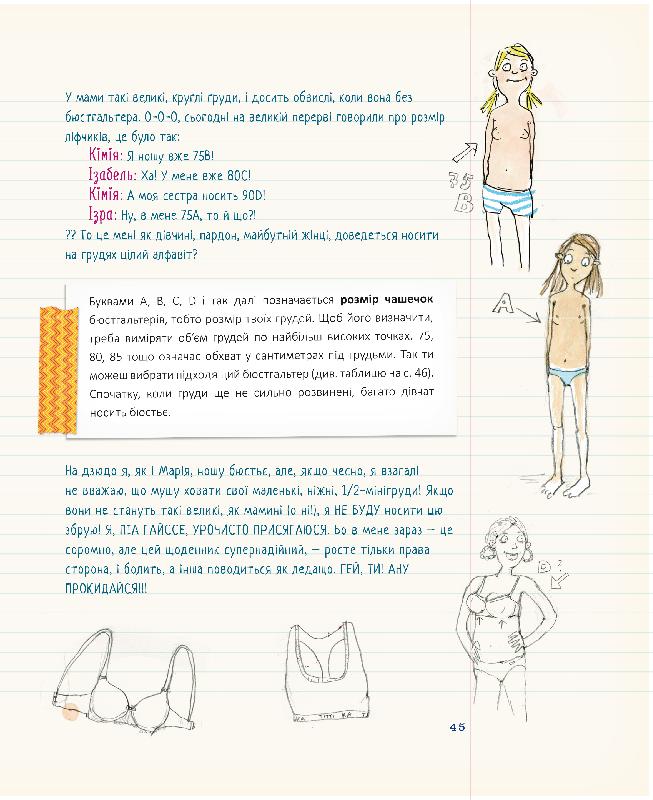 У мами такі великі, круглі груди, і досить обвислі, коли вона без
бюстгальтера. О-О-О, сьогодні на великій перерві говорили про розмір
ліфчиків, це було так:
Кімія: Я ношу вже 75B!
Ізабель: Ха! У мене вже 80C!
Кімія: А моя сестра носить 90D!
Ізра: Ну, в мене 75A, то й що?!
?? То це мені як дівчині, пардон, майбутній жінці, доведеться носити
на грудях цілий алфавіт?
75
B
A
Буквами A, B, C, D і так далі позначається розмір чашечок
бюстгальтерів, тобто розмір твоїх грудей. Щоб його визначити,
треба виміряти об'єм грудей по найбільш високих точках. 75,
80, 85 тощо означає обхват у сантиметрах під грудьми. Так ти
можеш вибрати підходящий бюстгальтер (див. таблицю на с. 46).
Спочатку, коли груди ще не сильно розвинені, багато дівчат
носить бюстьє.
На дзюдо я, як і Марія, ношу бюстьє, але, якщо чесно, я взагалі
не вважаю, що мушу ховати свої маленькі, ніжні, 1/2-мінігруди! Якщо
вони не стануть такі великі, як мамині (о ні!), я НЕ БУДУ носити цю
збрую! Я, ЛІА ГАЙССЕ, УРОЧИСТО ПРИСЯГАЮСЯ. Бо в мене зараз – це
соромно, але цей щоденник супернадійний, – росте тільки права
сторона, і болить, а інша поводиться як ледащо. ГЕЙ, ТИ! АНУ
ПРОКИДАЙСЯ!!!
D?
45